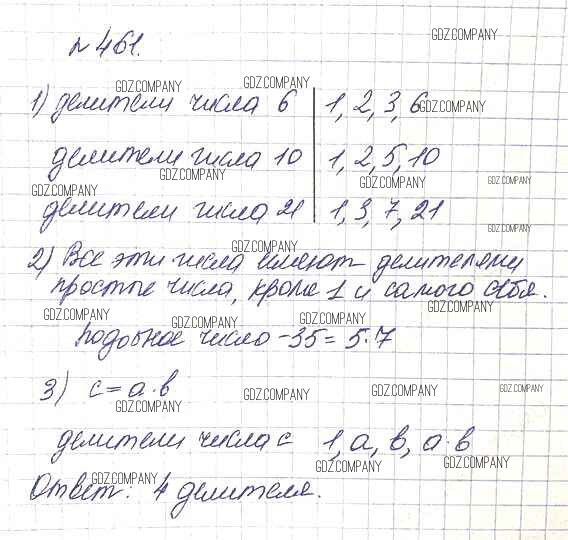 №461.
GDZ.COMPANY
GDZ.COMPANY GDZ.COMPANY
1) делители числа 6 | 1, 2, 3, 6 GDZ.COMPANY
делители числа 10 | 1, 2, 5, 10
GDZ.COMPANY GDZ.COMPANY GDZ.COMPANY
GDZ.COMPANY
делители числа 21 | 1, 3, 7, 21
GDZ.COMPANY
GDZ.COMPANY
2) Все эти числа имеют делителями
простые числа, кроме 1 и самого себя.
GDZ.COMPANY GDZ.COMPANY GDZ.COMPANY GDZ.COMPANY
подобное число - 35 = 5·7
3) c = a·b
GDZ.COMPANY GDZ.COMPANY GDZ.COMPANY GDZ.COMPANY
делители числа c 1, a, b, a·b
GDZ.COMPANY GDZ.COMPANY
GDZ.COMPANY
Ответ: 4 делителя.